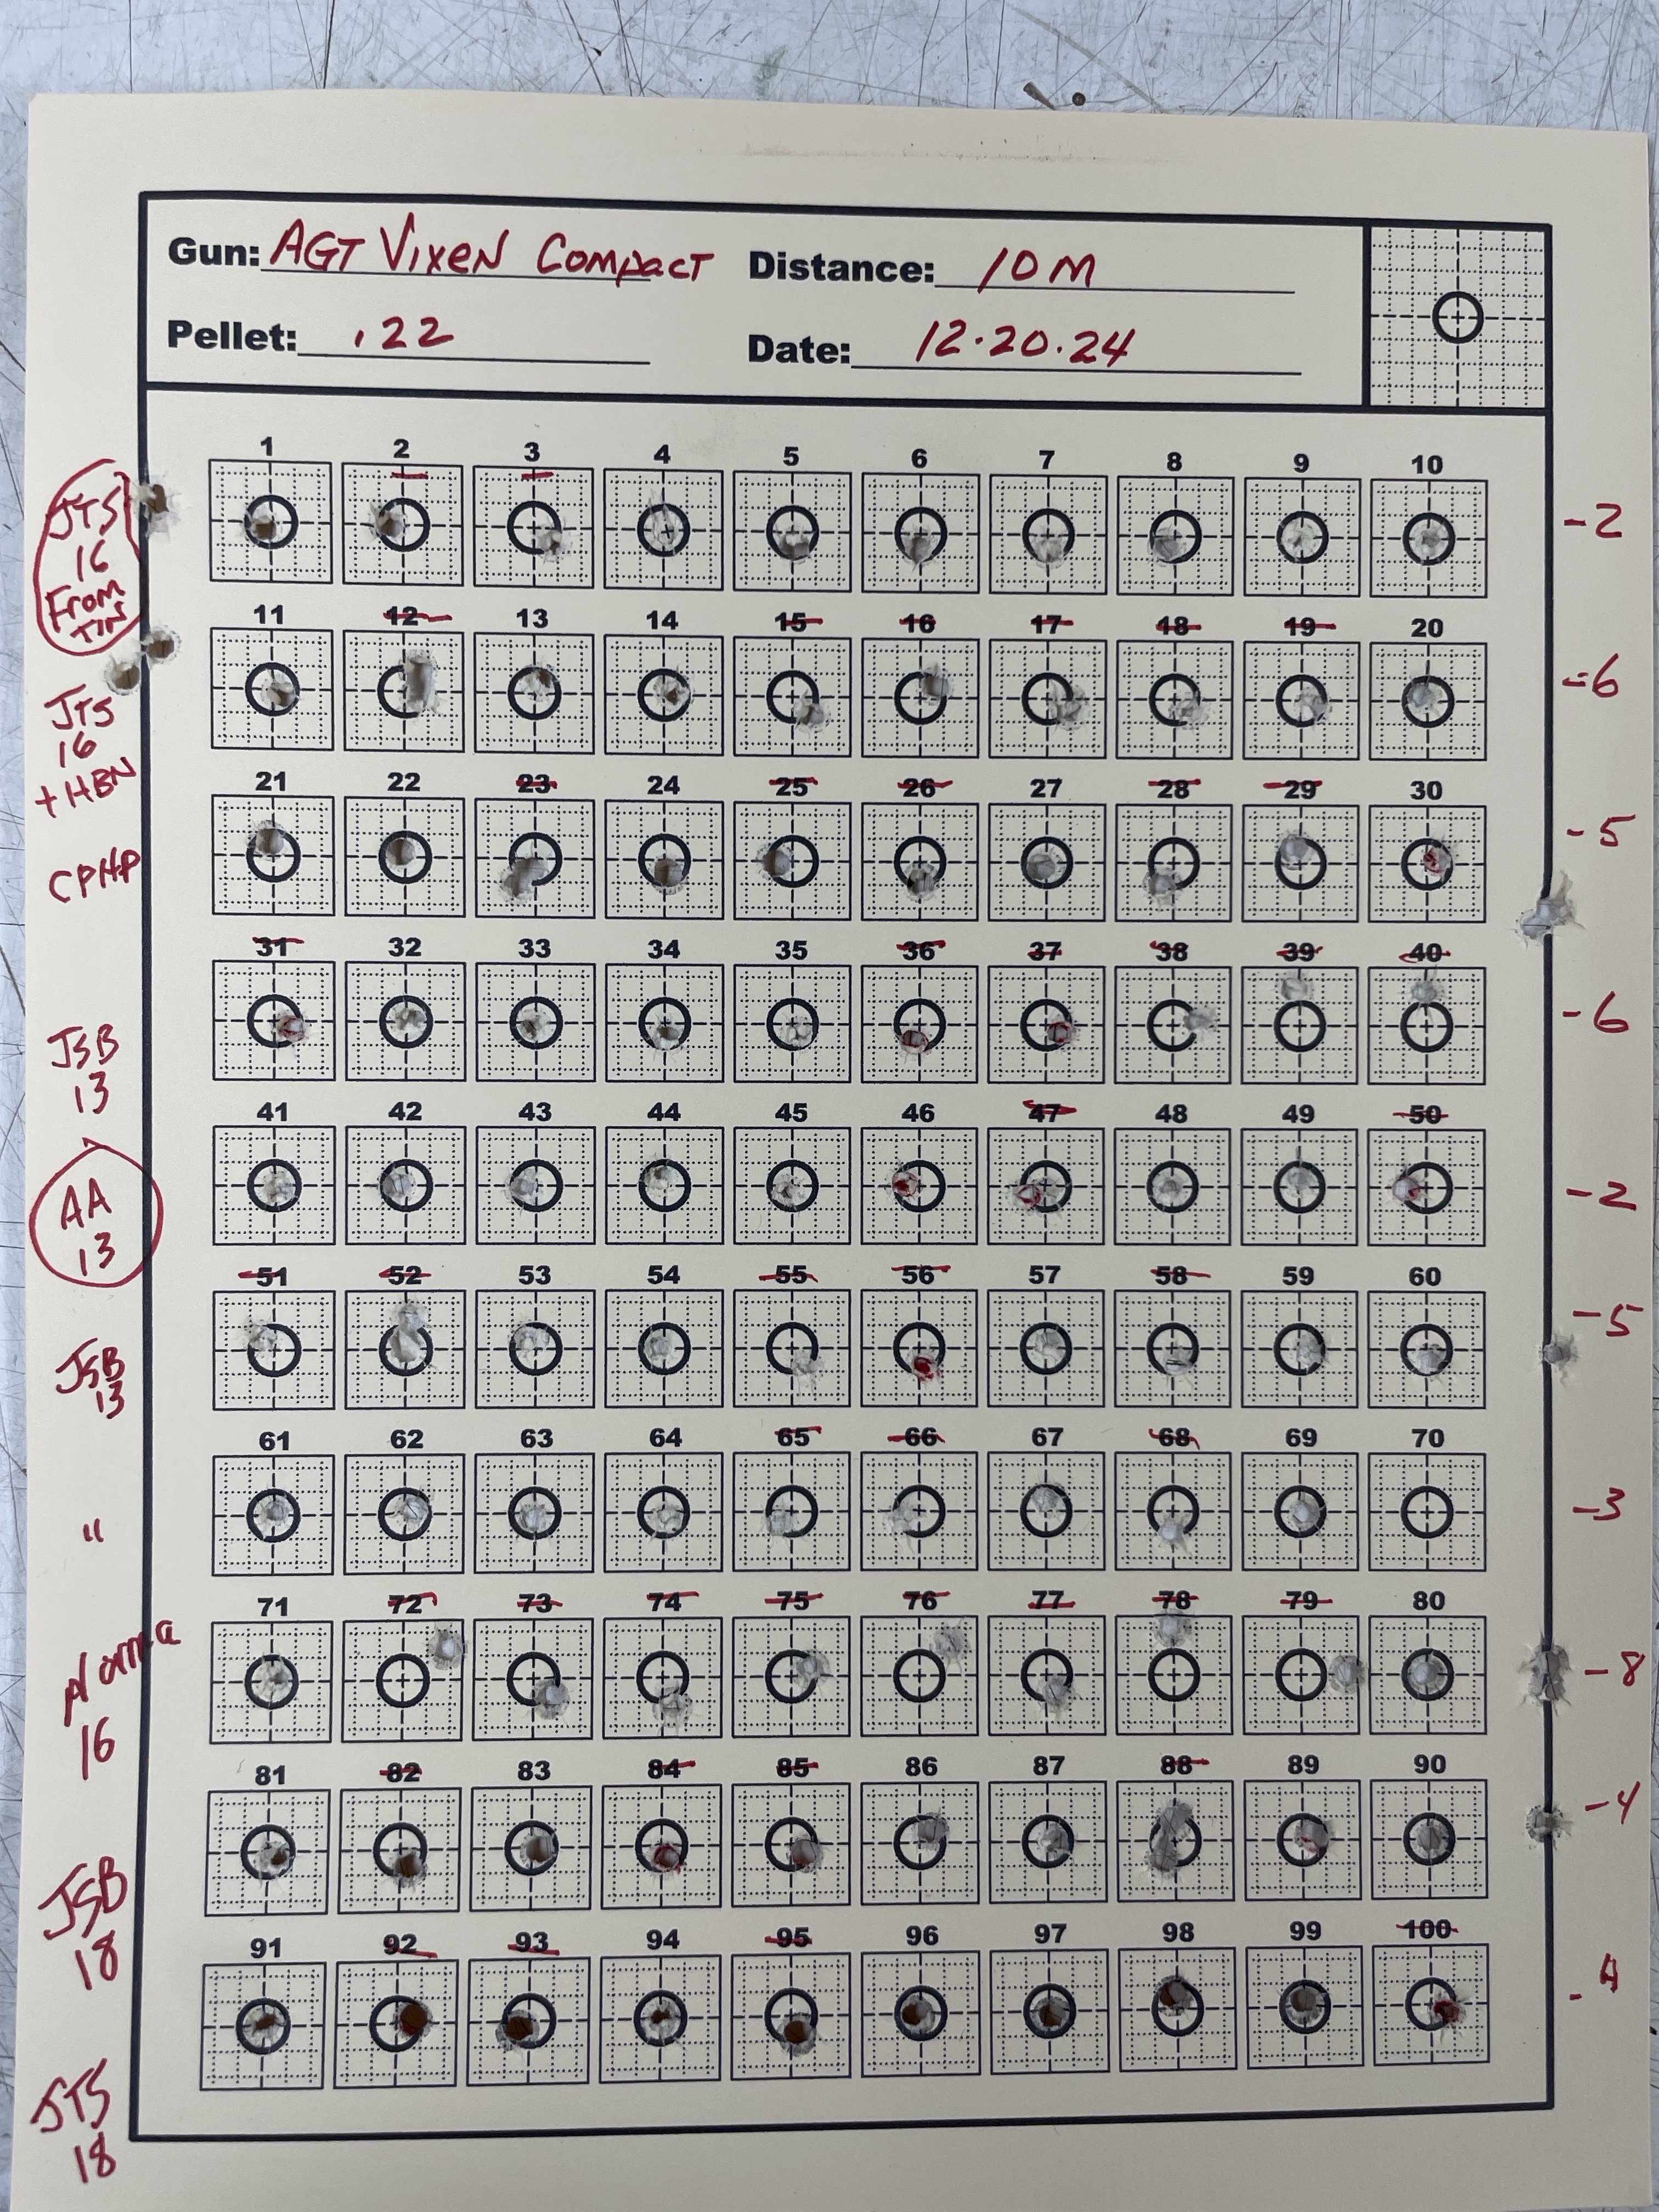 Gun: AGT Vixen Compact Distance: 10 M
Pellet: .22 Date: 12.20.24
1 2 3 4 5 6 7 8 9 10
JTS
16
From
TIN
-2
11 12 13 14 15 16 17 18 19 20
JTS
16
+HBN
-6
21 22 23 24 25 26 27 28 29 30
CPHP
-5
31 32 33 34 35 36 37 38 39 40
JSB
13
-6
41 42 43 44 45 46 47 48 49 50
AA
13
-2
51 52 53 54 55 56 57 58 59 60
JSB
13
-5
61 62 63 64 65 66 67 68 69 70
"
-3
71 72 73 74 75 76 77 78 79 80
Norma
16
-8
81 82 83 84 85 86 87 88 89 90
JSB
18
-4
91 92 93 94 95 96 97 98 99 100
JTS
18
-4